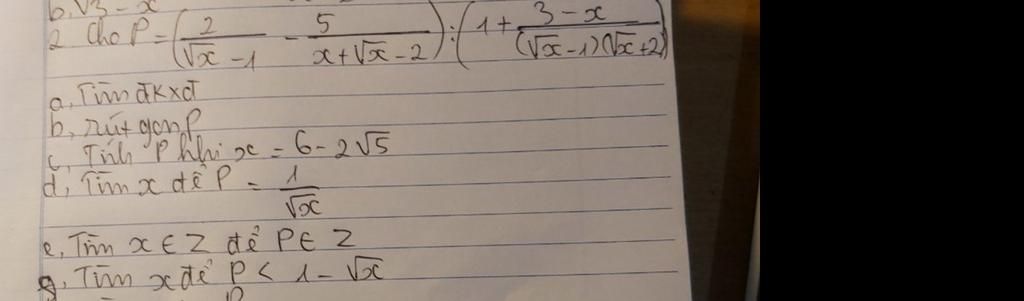 b, √3 - x
2 Cho P = (2/(√x - 1) - 5/(x + √x - 2)) : (1 + (3 - x)/((√x - 1)(√x + 2)))
a, Tìm đkxđ
b, rút gọn P
c, Tính P khi x = 6 - 2√5
d, Tìm x để P = 1/√x
e, Tìm x ∈ Z để P ∈ Z
g, Tìm x để P < 1 - √x